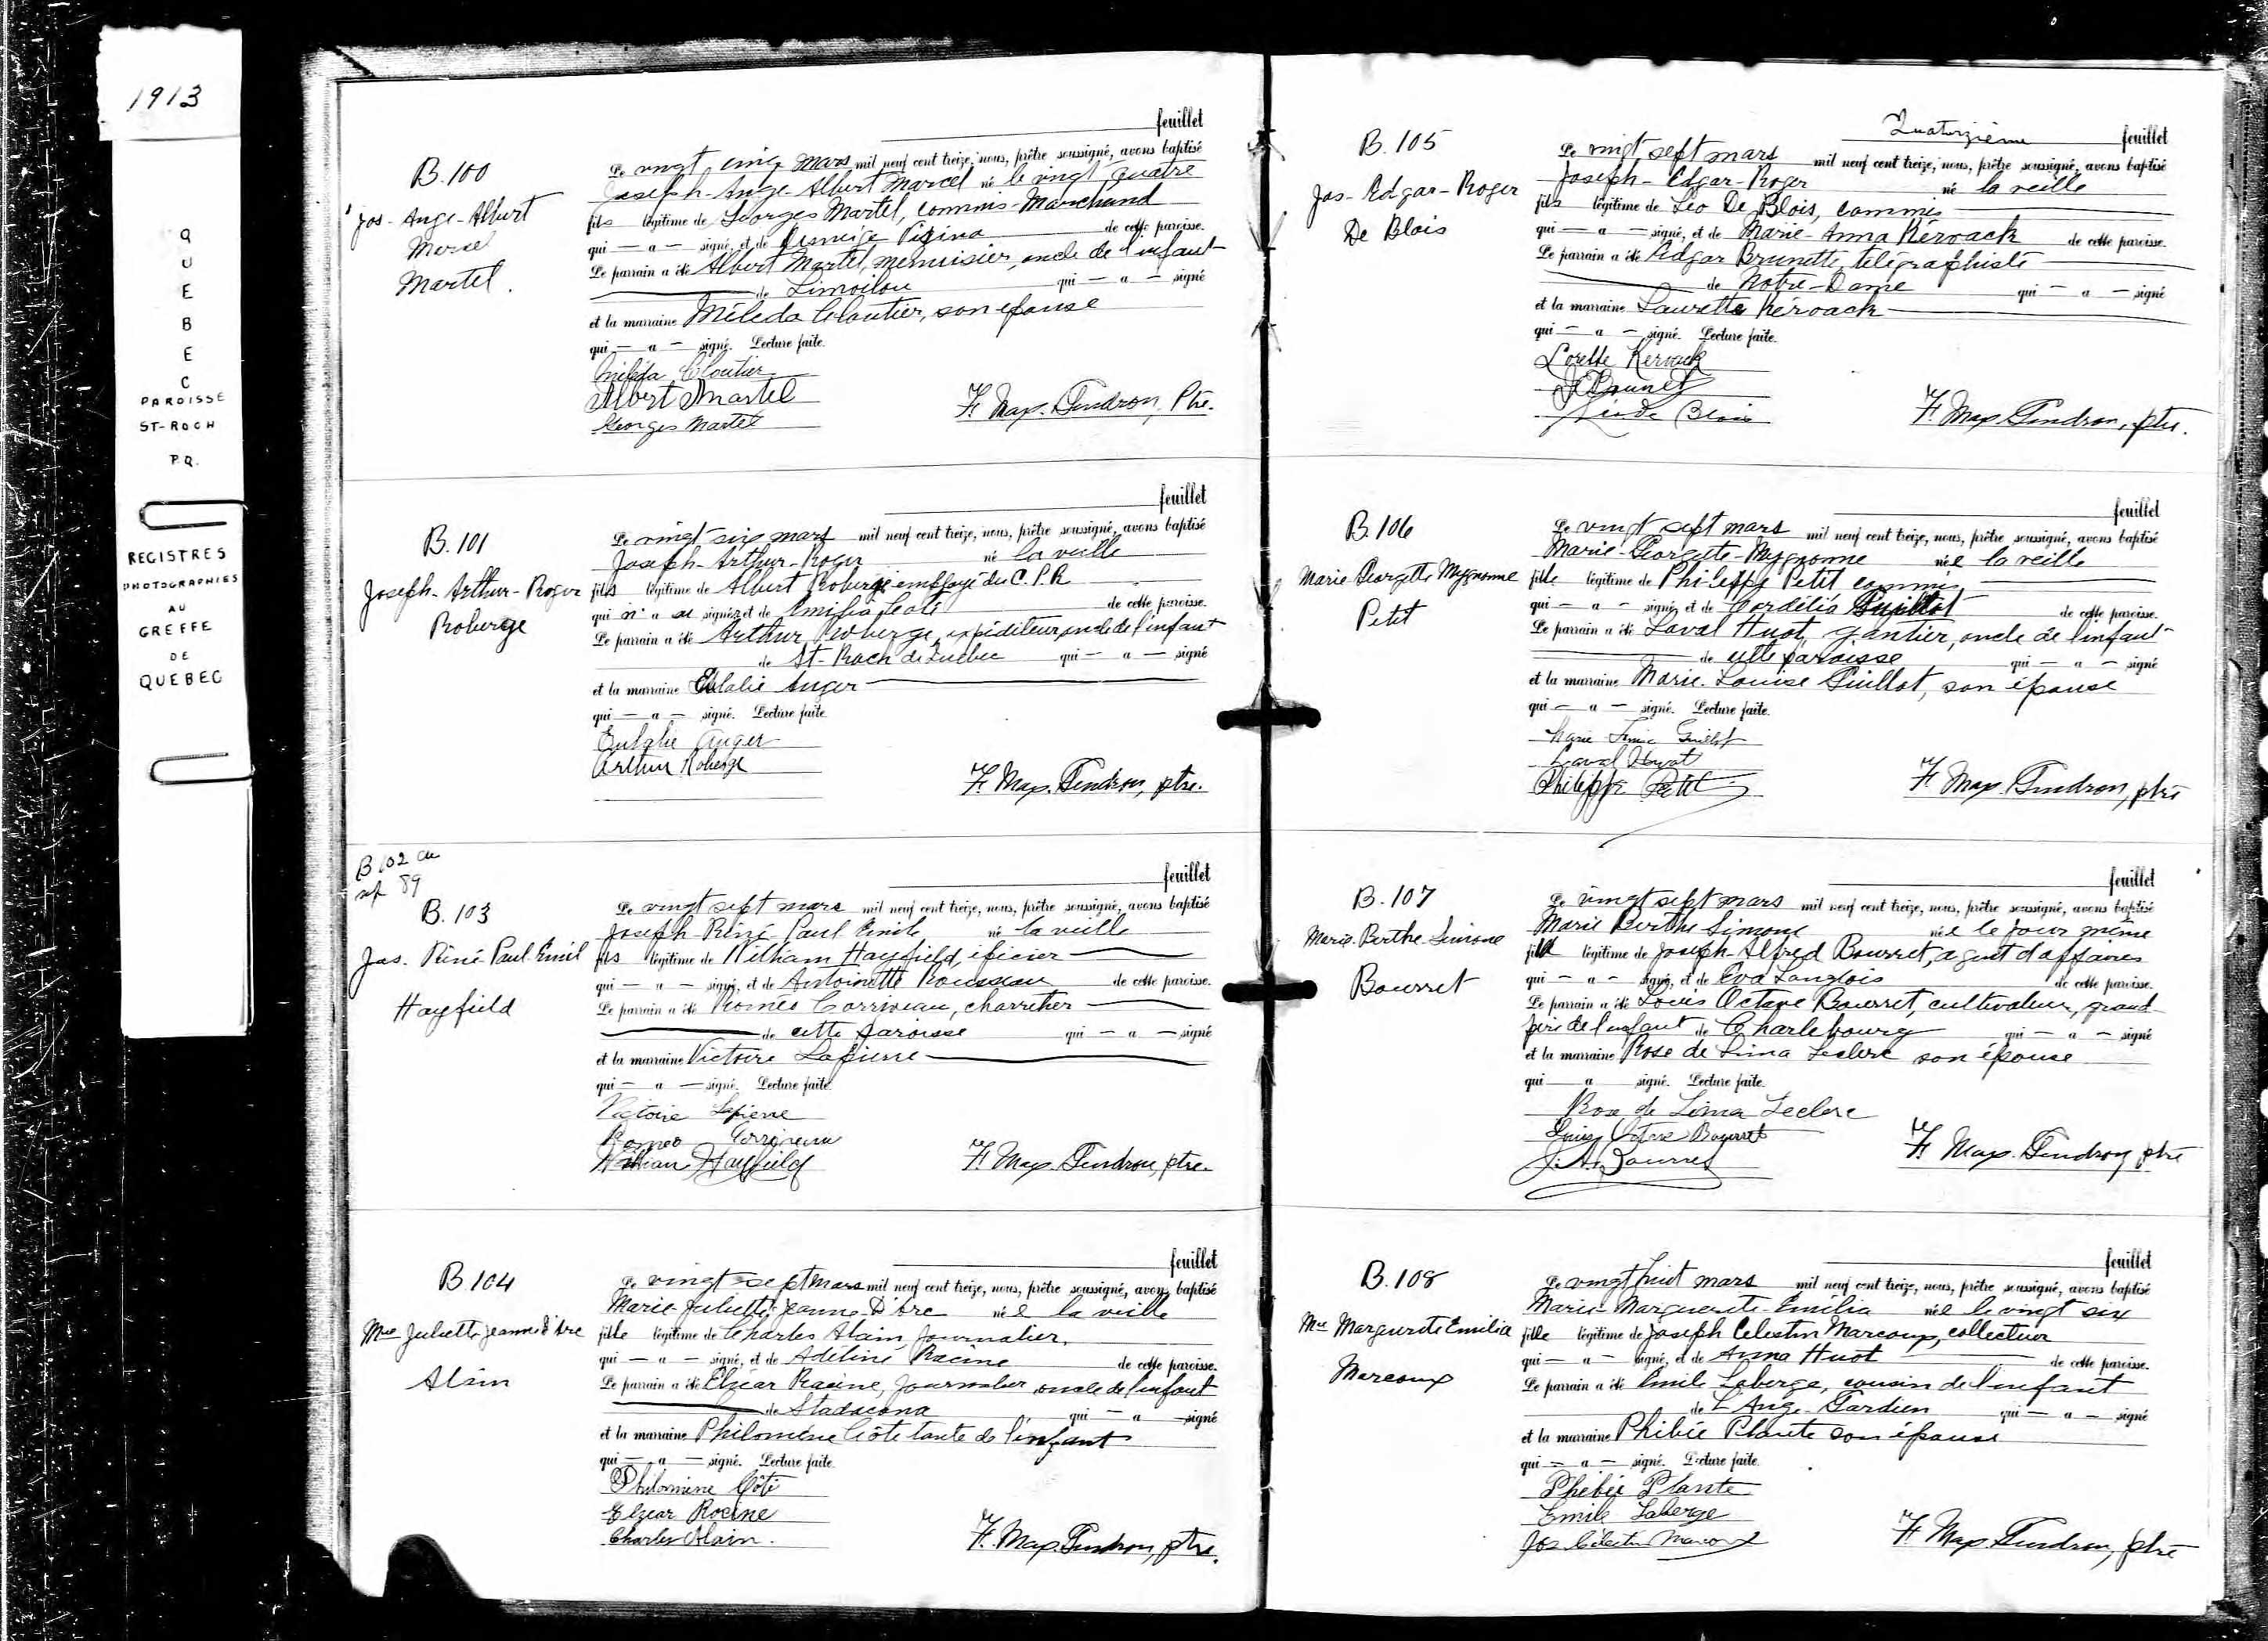 1913
QUEBEC
PAROISSE
ST-ROCH
P.Q.
REGISTRES
PHOTOGRAPHIES
AU
GREFFE
DE
QUEBEC
feuillet
B.100
Jos-Ange-Albert
Martel.
Le vingt cinq mars mil neuf cent treize, nous, prêtre soussigné, avons baptisé
Joseph-Ange-Albert Marcel né le vingt quatre
fils légitime de Georges Martel, commis-Marchand
qui — a — signé, et de Vézina de cette paroisse.
Le parrain a été Albert Martel, menuisier, oncle de l'enfant
de Limoilou qui — a — signé
et la marraine Méléda Cloutier, son épouse
qui — a — signé. Lecture faite.
Méléda Cloutier
Albert Martel
Georges Martel
F. Max. Gendron, Ptre.
feuillet
B.101
Joseph-Arthur-Roger
Roberge
Le vingt six mars mil neuf cent treize, nous, prêtre soussigné, avons baptisé
Joseph-Arthur-Roger né la veille
fils légitime de Albert Roberge employé du C.P.R
qui n'a su signer et de Emilia de cette paroisse.
Le parrain a été Arthur Roberge, expéditeur, oncle de l'enfant
de St-Roch de Québec qui — a — signé
et la marraine Eulalie Anger
qui — a — signé. Lecture faite
Eulalie Anger
Arthur Roberge
F. Max. Gendron, ptre.
B 102 au
89
feuillet
B.103
Jos. Réné Paul Emil
Hayfield
Le vingt sept mars mil neuf cent treize, nous, prêtre soussigné, avons baptisé
Joseph Réné Paul Emile né la veille
fils légitime de William Hayfield, épicier
qui — a — signé, et de Antoinette Rousseau de cette paroisse.
Le parrain a été Roméo Corriveau, charretier
de cette paroisse qui — a — signé
et la marraine Victoire Lapierre
qui — a — signé. Lecture faite.
Victoire Lapierre
Romeo Corriveau
William Hayfield
F. Max. Gendron, ptre.
feuillet
B 104
Mie Juliette Jeanne D'Arc
Alain
Le vingt-sept mars mil neuf cent treize, nous, prêtre soussigné, avons baptisé
Marie-Juliette-Jeanne-D'Arc née la veille
fille légitime de Charles Alain, Journalier,
qui — a — signé, et de Adéline Racine de cette paroisse.
Le parrain a été Elzéar Racine, Journalier oncle de l'enfant
de Stadacona qui — a — signé
et la marraine Philomène Côté tante de l'enfant
qui — a — signé. Lecture faite.
Philomène Côté
Elzear Racine
Charles Alain.
F. Max. Gendron, ptre.
Quatorzième feuillet
B.105
Jos-Edgar-Roger
De Blois
Le vingt sept mars mil neuf cent treize, nous, prêtre soussigné, avons baptisé
Joseph-Edgar-Roger né la veille
fils légitime de Léo De Blois, commis
qui — a — signé, et de Marie-Anna Kérvack de cette paroisse.
Le parrain a été Edgar Brunette, télégraphiste
de Notre-Dame qui — a — signé
et la marraine Laurette Kéroack
qui — a — signé. Lecture faite.
Lorette Keroack
F. Max Gendron, ptre.
feuillet
B.106
Marie Georgette Mygnonne
Petit
Le vingt sept mars mil neuf cent treize, nous, prêtre soussigné, avons baptisé
Marie-Georgette-Mygnonne née la veille
fille légitime de Philippe Petit commis
qui — a — signé, et de Cordélia Guillot de cette paroisse.
Le parrain a été Laval Huot, gantier, oncle de l'enfant
de cette paroisse qui — a — signé
et la marraine Marie-Louise Guillot, son épouse
qui — a — signé. Lecture faite.
Philippe Petit
F. Max. Gendron, ptre
feuillet
B.107
Marie-Berthe-Simone
Bourret
Le vingt sept mars mil neuf cent treize, nous, prêtre soussigné, avons baptisé
Marie Berthe Simone née le jour même
fille légitime de Joseph-Alfred Bourret, agent d'affaires
qui — a — signé, et de Eva Langlois de cette paroisse.
Le parrain a été Louis Octave Bourret, cultivateur, grand
père de l'enfant de Charlebourg qui — a — signé
et la marraine Rose de Lima Leclerc son épouse
qui — a — signé. Lecture faite.
Rose de Lima Leclerc
Louis Octave Bourret
J.A. Bourret
F. Max. Gendron ptre
feuillet
B.108
Mie Marguerite Emilia
Marcoux
Le vingt huit mars mil neuf cent treize, nous, prêtre soussigné, avons baptisé
Marie-Marguerite-Emilia née le vingt six
fille légitime de Joseph Celestin Marcoux, collecteur
qui — a — signé, et de Anna Huot de cette paroisse.
Le parrain a été Emile Laberge, cousin de l'enfant
de L'Ange-Gardien qui — a — signé
et la marraine Phébée Plante son épouse
qui — a — signé. Lecture faite.
Phébée Plante
Emile Laberge
Jos Célestin Marcoux
F. Max Gendron, ptre